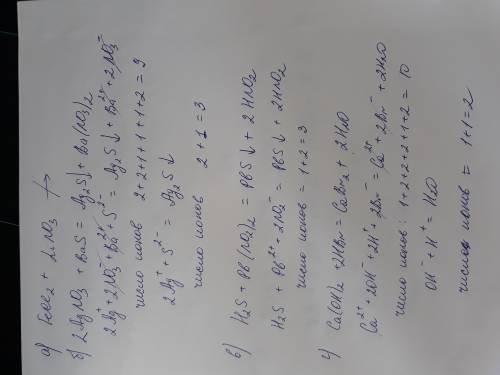 а) FeCl2 + LiNO3 ↛
б) 2AgNO3 + BaS = Ag2S↓ + Ba(NO3)2
2Ag⁺ + 2NO3⁻ + Ba²⁺ + S²⁻ = Ag2S↓ + Ba²⁺ + 2NO3⁻
число ионов 2+2+1+1+1+2 = 9
2Ag⁺ + S²⁻ = Ag2S↓
число ионов 2+1 = 3
в) H2S + Pb(NO2)2 = PbS↓ + 2HNO2
H2S + Pb²⁺ + 2NO2⁻ = PbS↓ + 2HNO2
число ионов = 1+2 = 3
г) Ca(OH)2 + 2HBr = CaBr2 + 2H2O
Ca²⁺ + 2OH⁻ + 2H⁺ + 2Br⁻ = Ca²⁺ + 2Br⁻ + 2H2O
число ионов: 1+2+2+2+1+2 = 10
OH⁻ + H⁺ = H2O
число ионов = 1+1=2